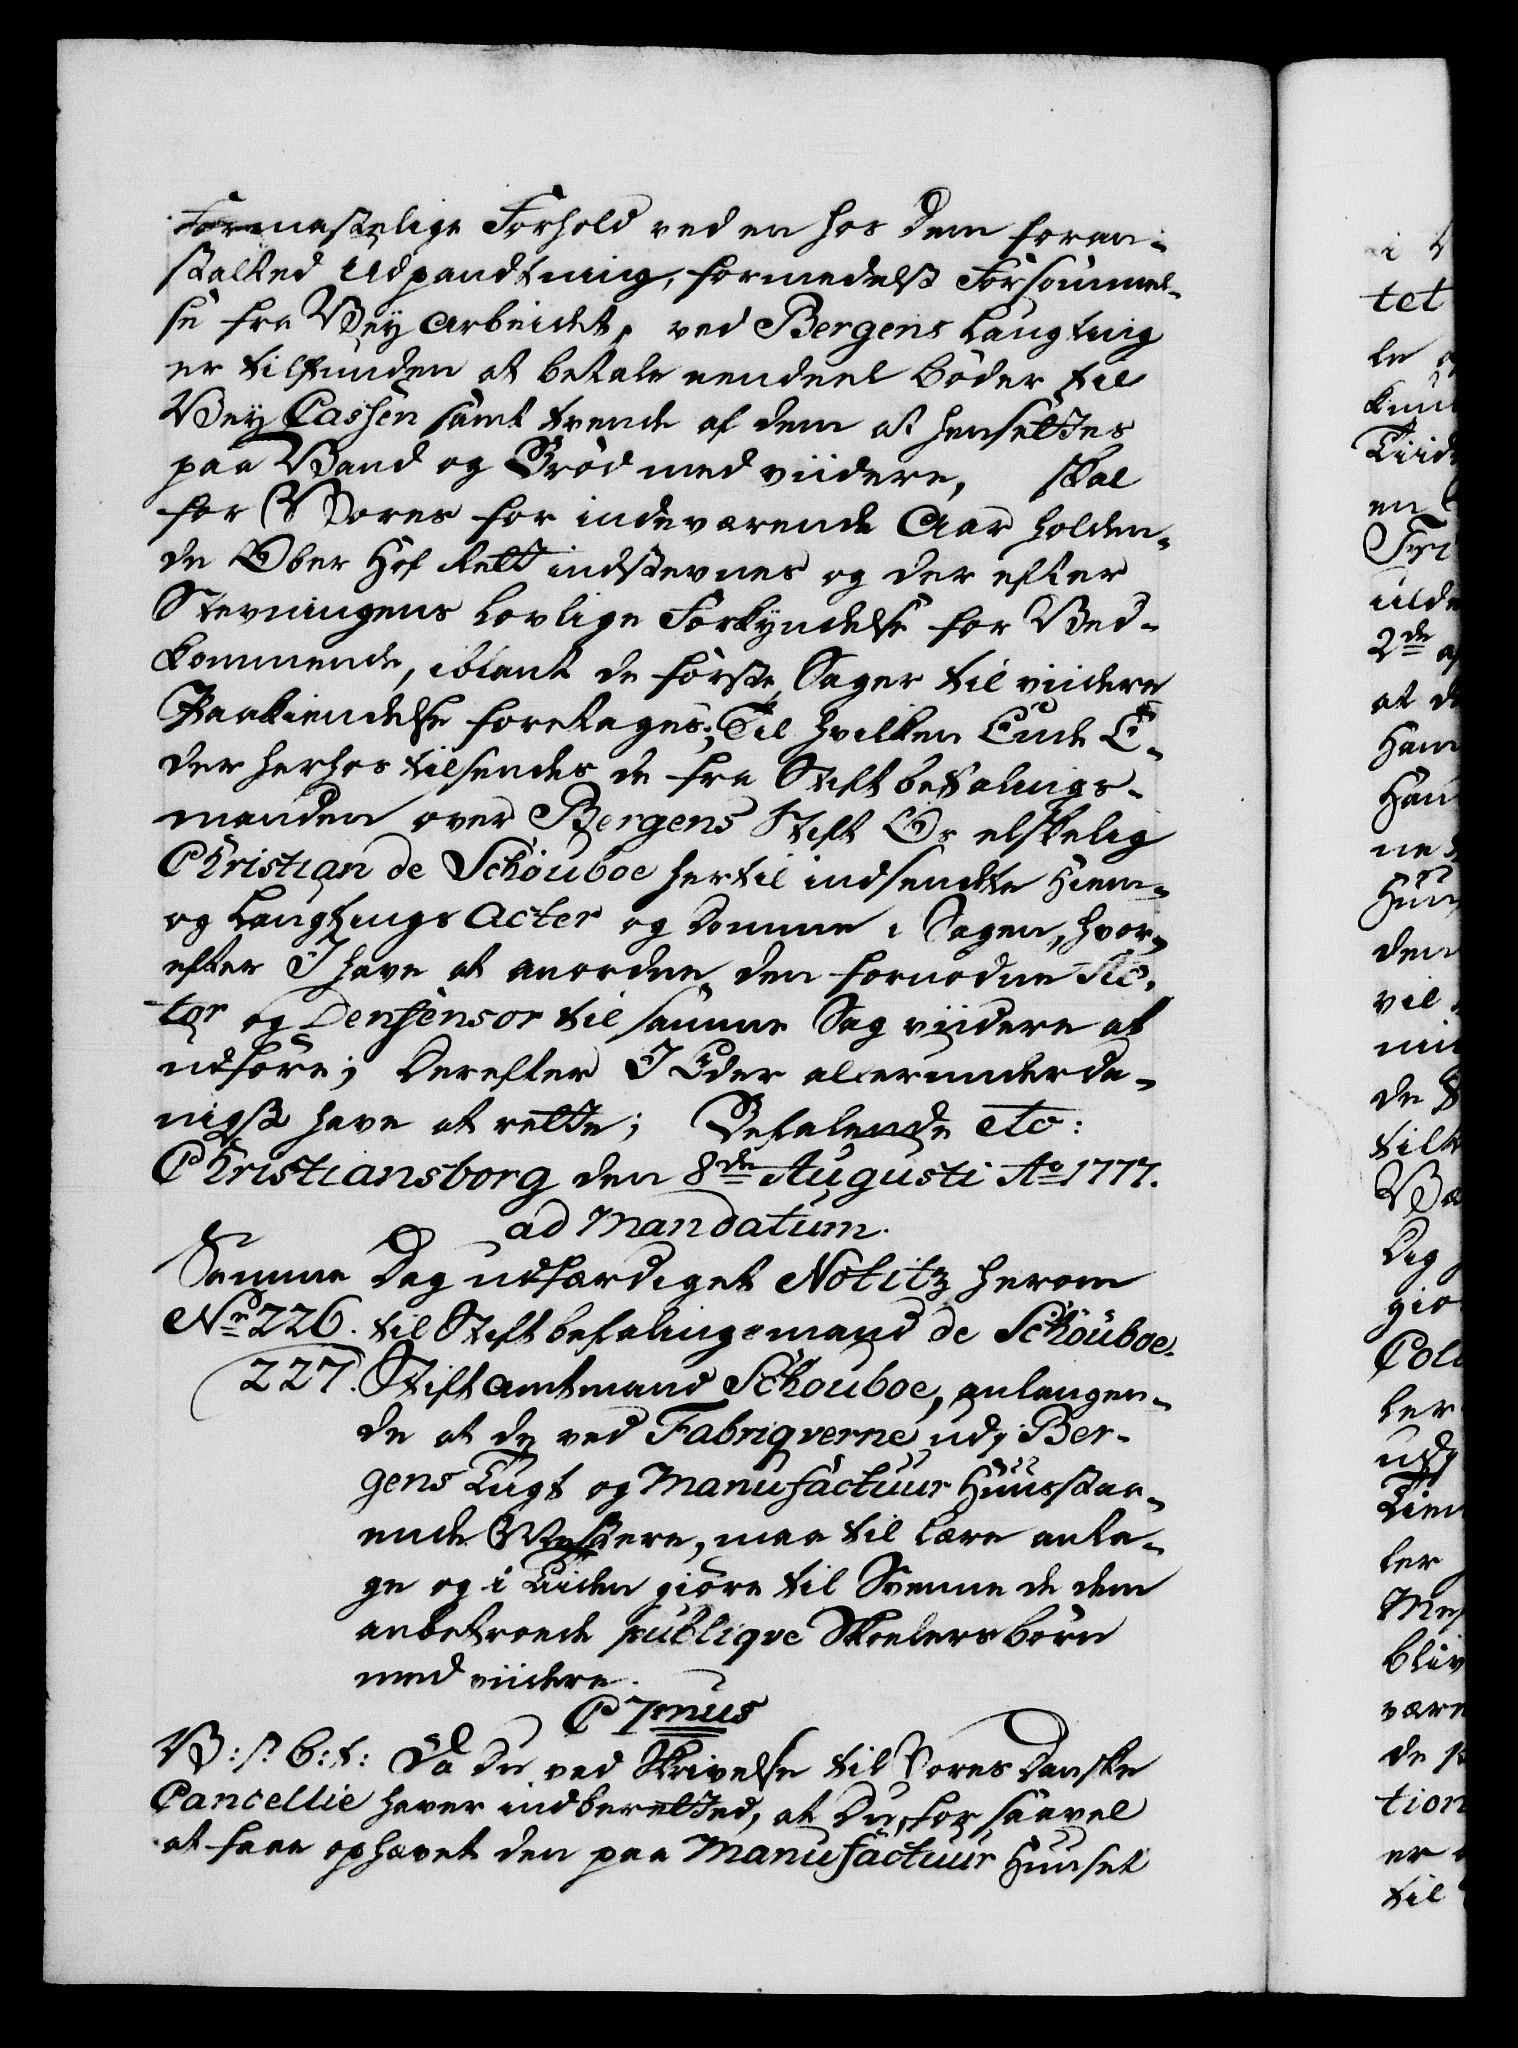 Formastelige Forhold ved en hos dem foran-
stalted Udpandtning, formedelst Forsömmel-
se fra Vey Arbeidet, ved Bergens Laugting
er tilfunden at betale eendeel Böder til
Vey Cassen samt trende af dem at hensettes
paa Vand og Bröd med viidere, skal
for Vores for indeværende Aar holden-
de Ober Hof Rett indstevnes og der efter
Stevningens lovlige Forkyndelse for Ved-
kommende, iblant de förste Sager til viidere
Paakiendelse foretages; Til hvilken Ende E-
der herhos tilsendes de fra Stiftbefalings-
manden over Bergens Stift Os elskelig
Christian de Schouboe hertil indsendte Hiem-
og Laugtings Acter og Domme i Sagen, hvor-
efter I have at anordne den fornödne Ac-
tor og Defensor til samme Sag viidere at
udföre; Derefter I Eder allerunderda-
nigst have at rette; Befalende etc:
Christiansborg den 8de Augusti Ao 1777.
ad Mandatum.
Samme Dag udfærdiget Notitz herom
No 226. til Stiftbefalingsmand de Schouboe.
227. Stiftamtmand Schouboe, anlangen-
de at de ved Fabriqverne udj Ber-
gens Tugt og Manufactuur Huus staa-
ende Mestere, maa til Lære anta-
ge og i Tiiden giöre til Svenne de dem
anbetroede publique Skolers Börn
med viidere.
C 7mus
V: s. G: t: Da Du ved Skrivelse til Vores Danske
Cancellie haver indberetted, at Du, for saavel
at faae ophævet den paa Manufactuur Huuset